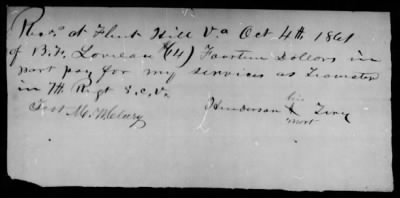 Recd at Flint Hill Va Oct 4th 1861
of B.F. Loveless $(14) Fourteen Dollars in
part pay for my services as Teamster
in 7th Regt S.C.Vs
his
Test Henderson X
mark